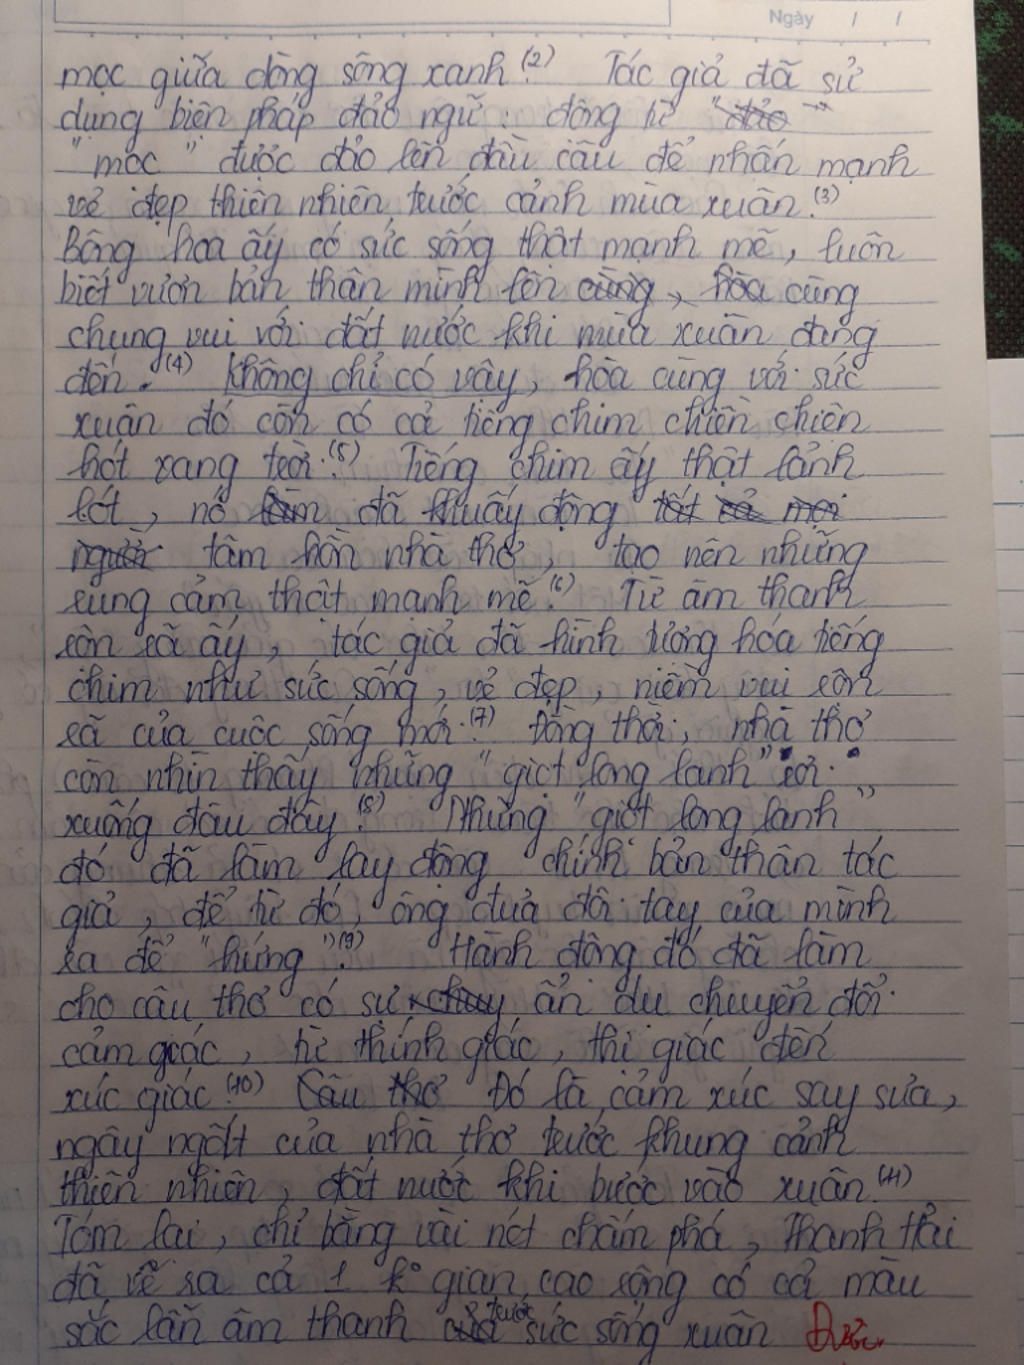 Ngày / /
mọc giữa dòng sông xanh.(2) Tác giả đã sử
dụng biện pháp đảo ngữ: động từ "đảo"
"mọc" được đảo lên đầu câu để nhấn mạnh
vẻ đẹp thiên nhiên trước cảnh mùa xuân.(3)
Bông hoa ấy có sức sống thật mạnh mẽ, luôn
biết vươn bản thân mình lên cùng, hòa cùng
chung vui với đất nước khi mùa xuân đang
đến.(4) Không chỉ có vậy, hòa cùng với sức
xuân đó còn có cả tiếng chim chiền chiện
hót vang trời.(5) Tiếng chim ấy thật lảnh
lót, nó làm đã khuấy động tất cả mọi
người tâm hồn nhà thơ, tạo nên những
rung cảm thật mạnh mẽ.(6) Từ âm thanh
rộn rã ấy, tác giả đã hình tượng hóa tiếng
chim như sức sống, vẻ đẹp, niềm vui rộn
rã của cuộc sống mới.(7) Đồng thời, nhà thơ
còn nhìn thấy những "giọt long lanh" rơi
xuống đâu đây.(8) Những "giọt long lanh"
đó đã làm lay động chính bản thân tác
giả, để từ đó, ông đưa đôi tay của mình
ra để "hứng".(9) Hành động đó đã làm
cho câu thơ có sự chuy ẩn dụ chuyển đổi
cảm giác, từ thính giác, thị giác đến
xúc giác.(10) Câu thơ Đó là cảm xúc say sưa,
ngây ngất của nhà thơ trước khung cảnh
thiên nhiên, đất nước khi bước vào xuân.(11)
Tóm lại, chỉ bằng vài nét chấm phá, Thanh Hải
đã vẽ ra cả 1 k° gian cao rộng có cả màu
sắc lẫn âm thanh của trước sức sống xuân Được